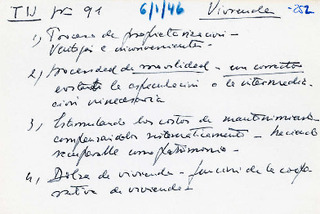 TN Nº 91 6/1/46 Vivienda -252
1) Proceso de propietarización -
Ventajas e inconvenientes -
2) Necesidad de movilidad - con
evitando la especulación o la intermedia-
ción innecesaria
3) Estimulando los costos de mantenimiento
compensándolos sistemáticamente - haciendo
recuperable como patrimonio -
4) Bolsa de vivienda - función de la coope-
rativa de viviendas